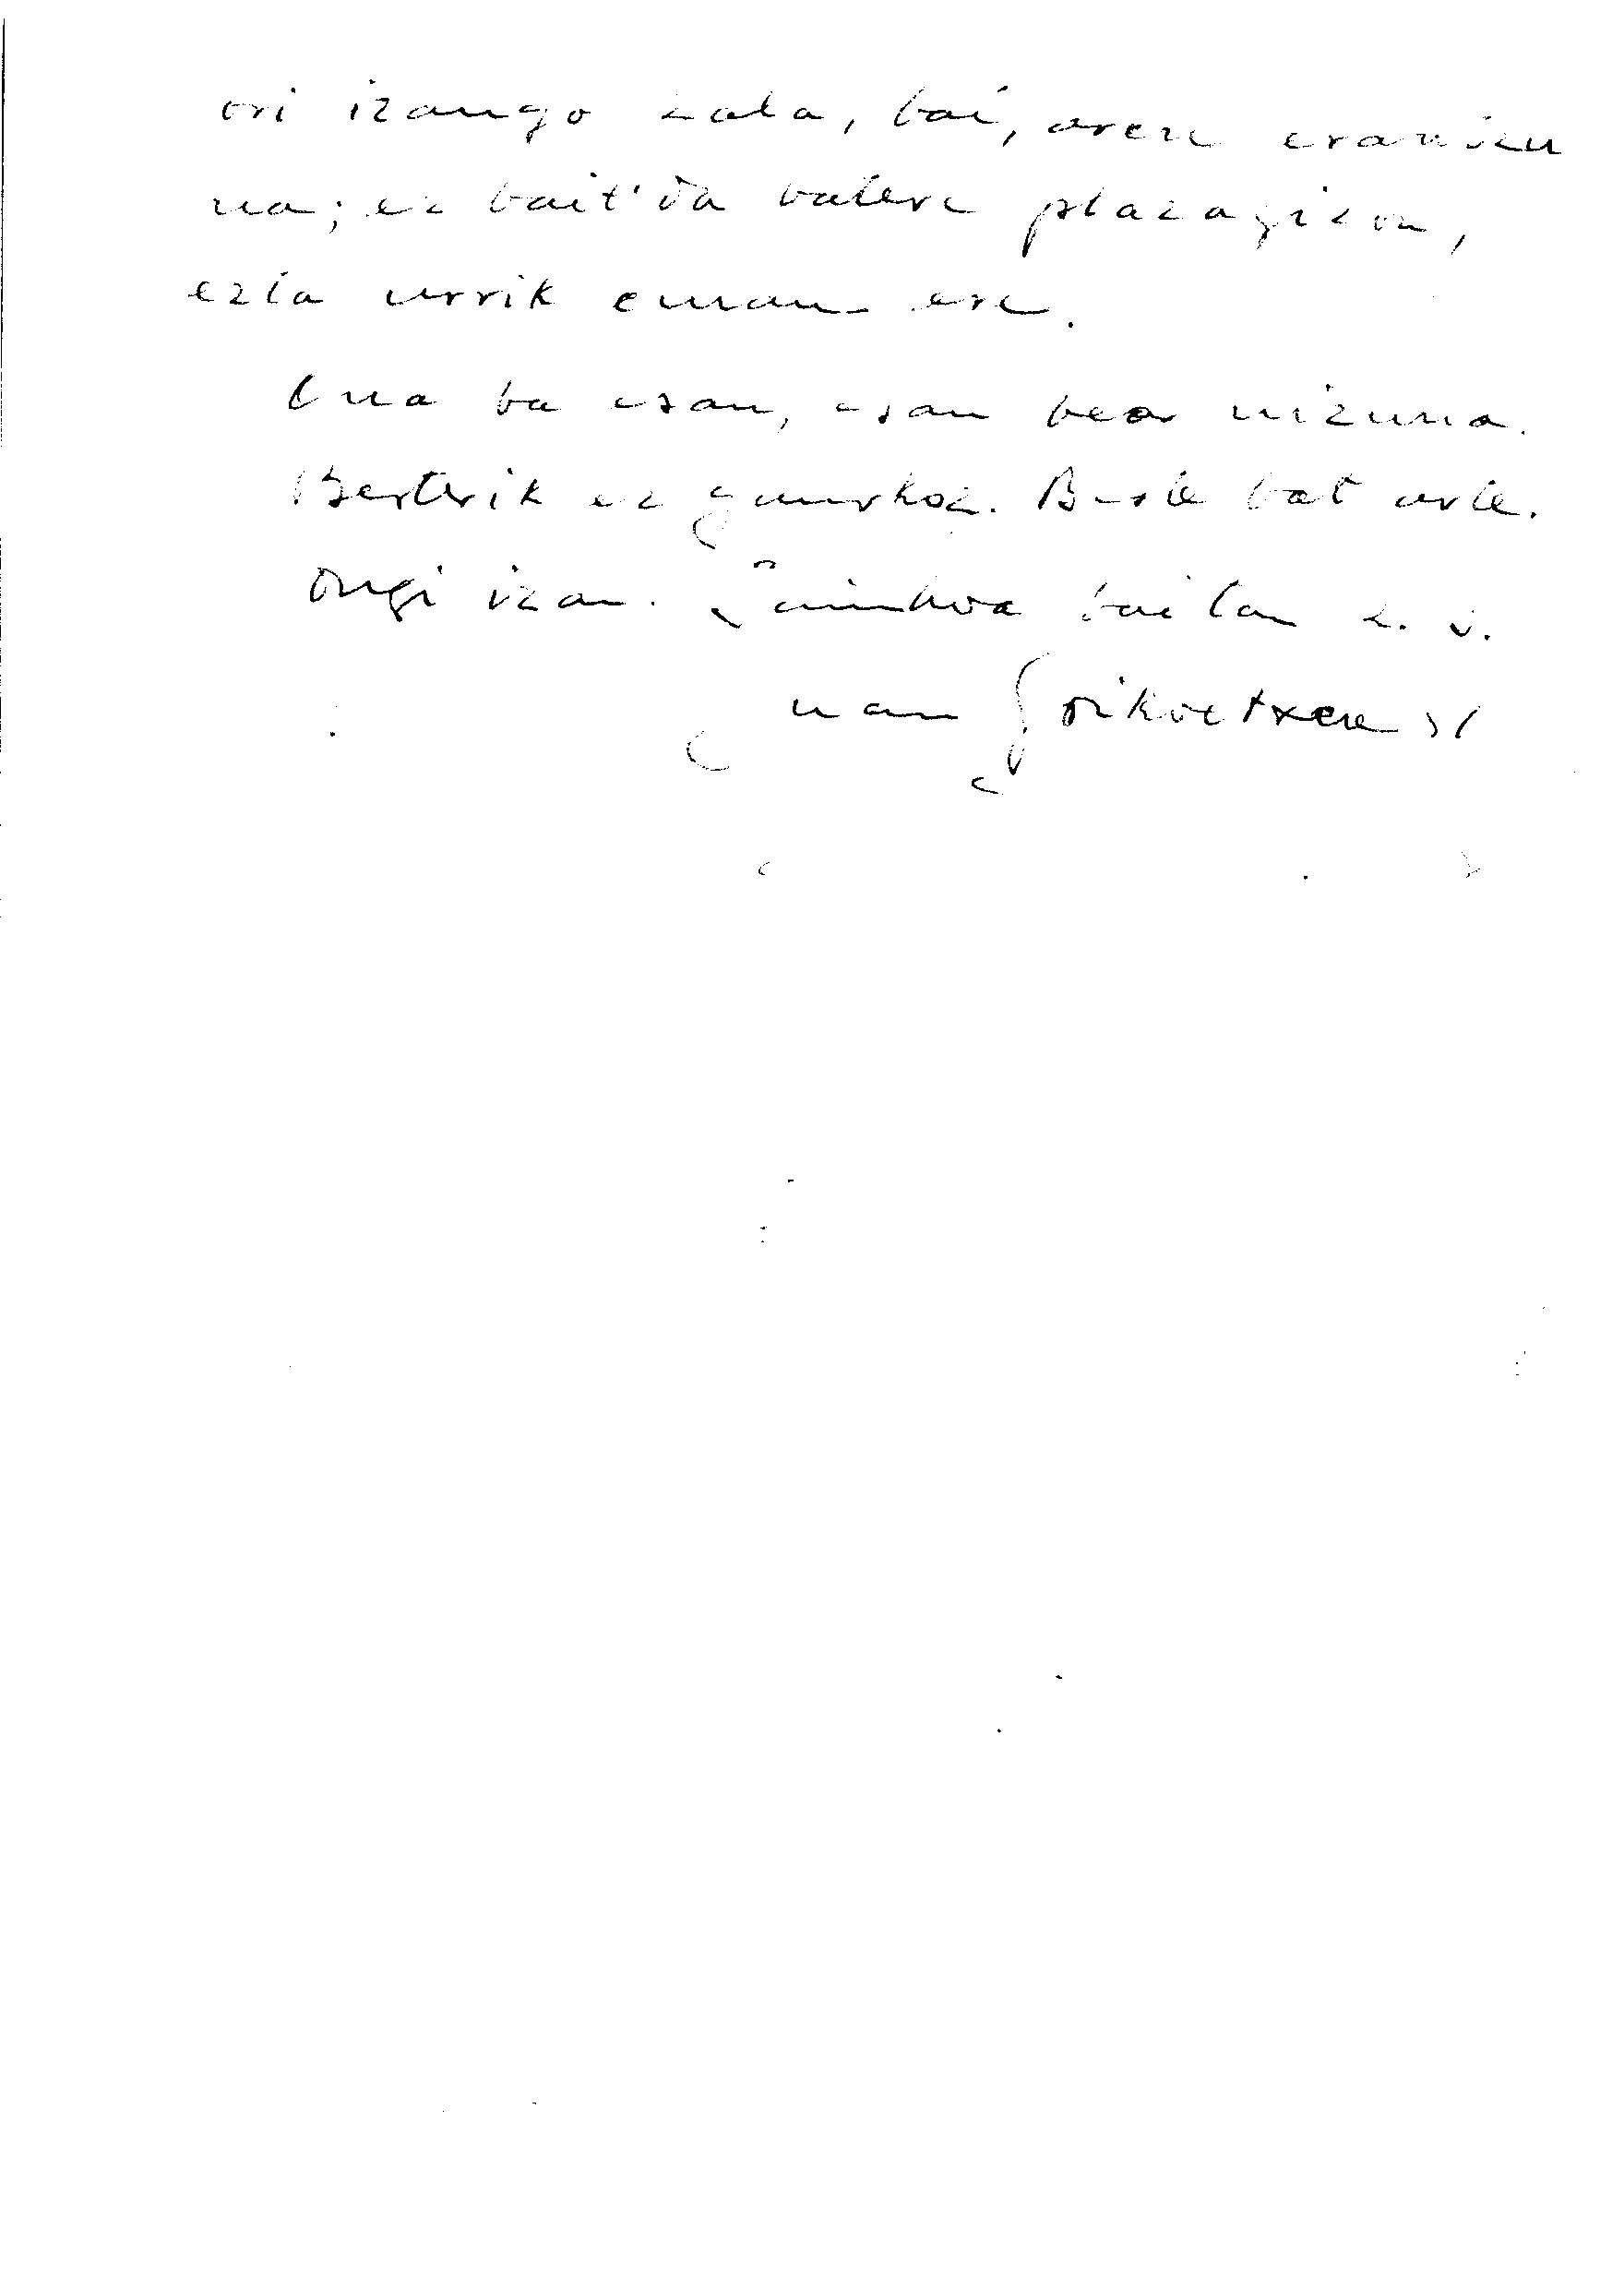 ori izango zala, bai, aren erantzu
na; ez bait'da batere plazagizon,
ezta urrik eman ere.
Ona ba esan, esan bear nizuna.
Besterik ez gaurkoz. Beste bat arte.
Ongi izan. Jainkoa baitan z. i.
Juan Goikoetxea